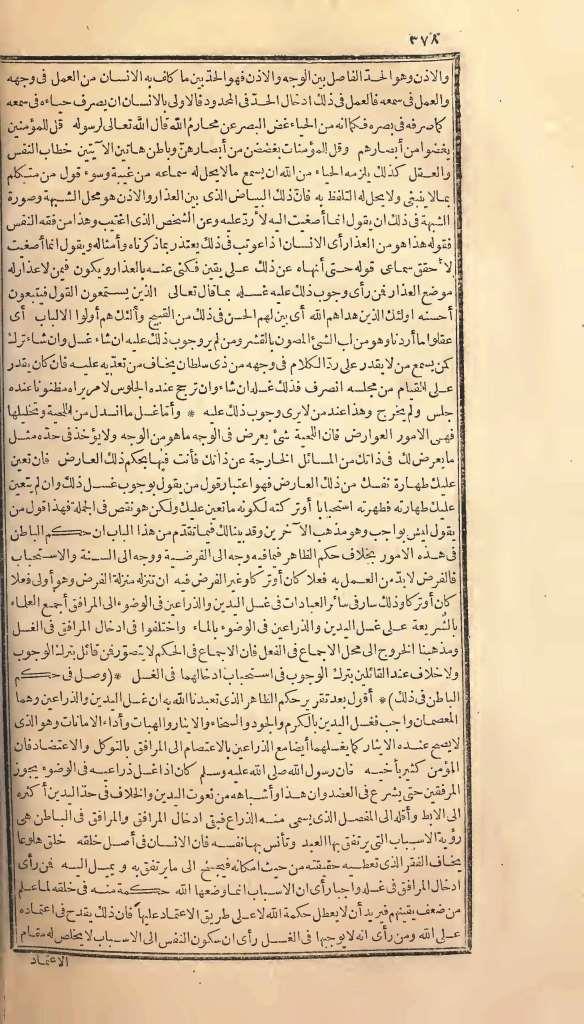 ٣٧٨
والاذن وهو الحد الفاصل بين الوجه والاذن فهو الحد بين ما كلف به الانسان من العمل فى وجهه
والعمل فى سمعه فالعمل فى ذلك ادخال الحد فى المحدود فالاولى بالانسان ان يصرف حياءه فى سمعه
كما صرفه فى بصره فكما انه من الحياء غض البصر عن محارم الله قال الله تعالى لرسوله قل للمؤمنين
يغضوا من أبصارهم وقل للمؤمنات يغضضن من أبصارهن وباطن هاتين الآيتين خطاب النفس
والعقل كذلك يلزمه الحياء من الله ان يسمع ما لا يحل له سماعه من غيبة وسوء قول من متكلم
بما لا ينبغى ولا يحل له التلفظ به فان ذلك البياض الذى بين العذار والاذن هو محل الشبهة وصورة
الشبهة فى ذلك ان يقول انما أصغيت اليه لأردّ عليه وعن الشخص الذى اغتيب وهذا من فقه النفس
فقوله هذا هو من العذار أى الانسان اذا عوتب فى ذلك يعتذر بما ذكرناه وأمثاله ويقول انما أصغيت
لأحقق سماعى قوله حتى أنهاه عن ذلك على يقين فكنى عنه بالعذار ويكون فيمن لا عذار له
موضع العذار فمن رأى وجوب ذلك عليه غسله بما قال تعالى الذين يستمعون القول فيتبعون
أحسنه اولئك الذين هداهم الله أى بين لهم الحسن فى ذلك من القبيح وأولئك هم أولوا الالباب أى
عقلوا ما أردنا وهو من لب الشئ المصون بالقشر ومن لم ير وجوب ذلك عليه ان شاء غسل وان شاء ترك
كمن يسمع ممن لا يقدر على ردّ الكلام فى وجهه من ذى سلطان يخاف من تعديه عليه فان كان يقدر
على القيام من مجلسه انصرف فذلك غسله ان شاء وان ترجح عنده الجلوس لامر يراه مظنونا عنده
جلس ولم يخرج وهذا عند من لا يرى وجوب ذلك عليه * وأما غسل ما انسدل من اللحية وتخليلها
فهى الامور العوارض فان اللحية شئ يعرض فى الوجه ما هو من الوجه ولا يؤخذ فى حده مثل
ما يعرض لك فى ذاتك من المسائل الخارجة عن ذاتك فأنت فيها بحكم ذلك العارض فان تعين
عليك طهارة نفسك من ذلك العارض فهو اعتبار قول من يقول بوجوب غسل ذلك وان لم يتعين
عليك طهارته فطهرته استحبابا أو تركته لكونه ما تعين عليك ولكن هو نقص فى الجملة فهذا قول من
يقول ليس بواجب وهو مذهب الآخرين وقد بينا لك فيما تقدم من هذا الباب ان حكم الباطن
فى هذه الامور بخلاف حكم الظاهر فيما فيه وجه الى الفرضية ووجه الى السنة والاستحباب
فالفرض لا بد من العمل به فعلا كان أو تركا وغير الفرض فيه ان تنزله منزلة الفرض وهو أولى فعلا
كان أو تركا وذلك سار فى سائر العبادات فى غسل اليدين والذراعين فى الوضوء الى المرافق أجمع العلماء
بالشريعة على غسل اليدين والذراعين فى الوضوء بالماء واختلفوا فى ادخال المرافق فى الغسل
ومذهبنا الخروج الى محل الاجماع فى الفعل فان الاجماع فى الحكم لا يتصور فمن قائل بترك الوجوب
ولا خلاف عند القائلين بترك الوجوب فى استحباب ادخالهما فى الغسل * (وصل فى حكم
الباطن فى ذلك) * أقول بعد تقرير حكم الظاهر الذى تعبدنا الله به ان غسل اليدين والذراعين وهما
المعصمان واجب فغسل اليدين بالكرم والجود والسخاء والايثار والهبات وأداء الامانات وهو الذى
لا يصح عنده الايثار كما يغسلهما أيضا مع الذراعين بالاعتصام الى المرافق بالتوكل والاعتضاد فان
المؤمن كثير بأخيه فان رسول الله صلى الله عليه وسلم كان اذا غسل ذراعيه فى الوضوء يجوز
المرفقين حتى يشرع فى العضد وان هذا وأشباهه من نعوت اليدين والخلاف فى حد اليدين أكثره
الى الابط وأقله الى المفصل الذى يسمى منه الذراع فبقى ادخال المرافق والمرافق فى الباطن هى
رؤية الاسباب التى يرتفق بها العبد وتأنس بها نفسه فان الانسان فى أصل خلقه خلق هلوعا
يخاف الفقر الذى تعطيه حقيقته من حيث امكانه فيجنح الى ما يرتفق به ويميل اليه فمن رأى
ادخال المرافق فى غسله واجبا رأى ان الاسباب انما وضعها الله حكمة منه فى خلقه لما علم
من ضعف يقينهم فيريد أن لا يعطل حكمة الله لا على طريق الاعتماد عليها فان ذلك يقدح فى اعتماده
على الله ومن رأى انه لا يوجبها فى الغسل رأى ان سكون النفس الى الاسباب لا يخلص له مقام
الاعتماد